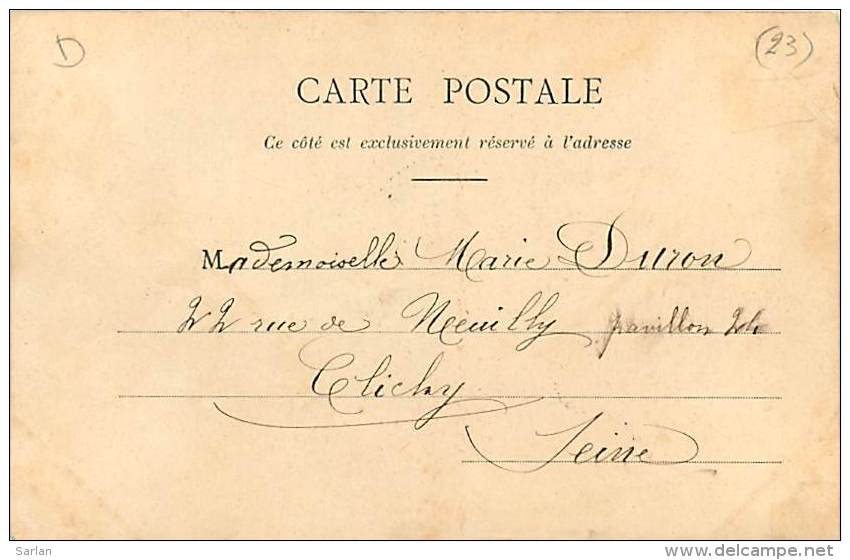 D
(23)
CARTE POSTALE
Ce côté est exclusivement réservé à l'adresse
Mademoiselle Marie Duron
22 rue de Neuilly pavillon
Clichy
Seine
Sarlan
www.delcampe.net